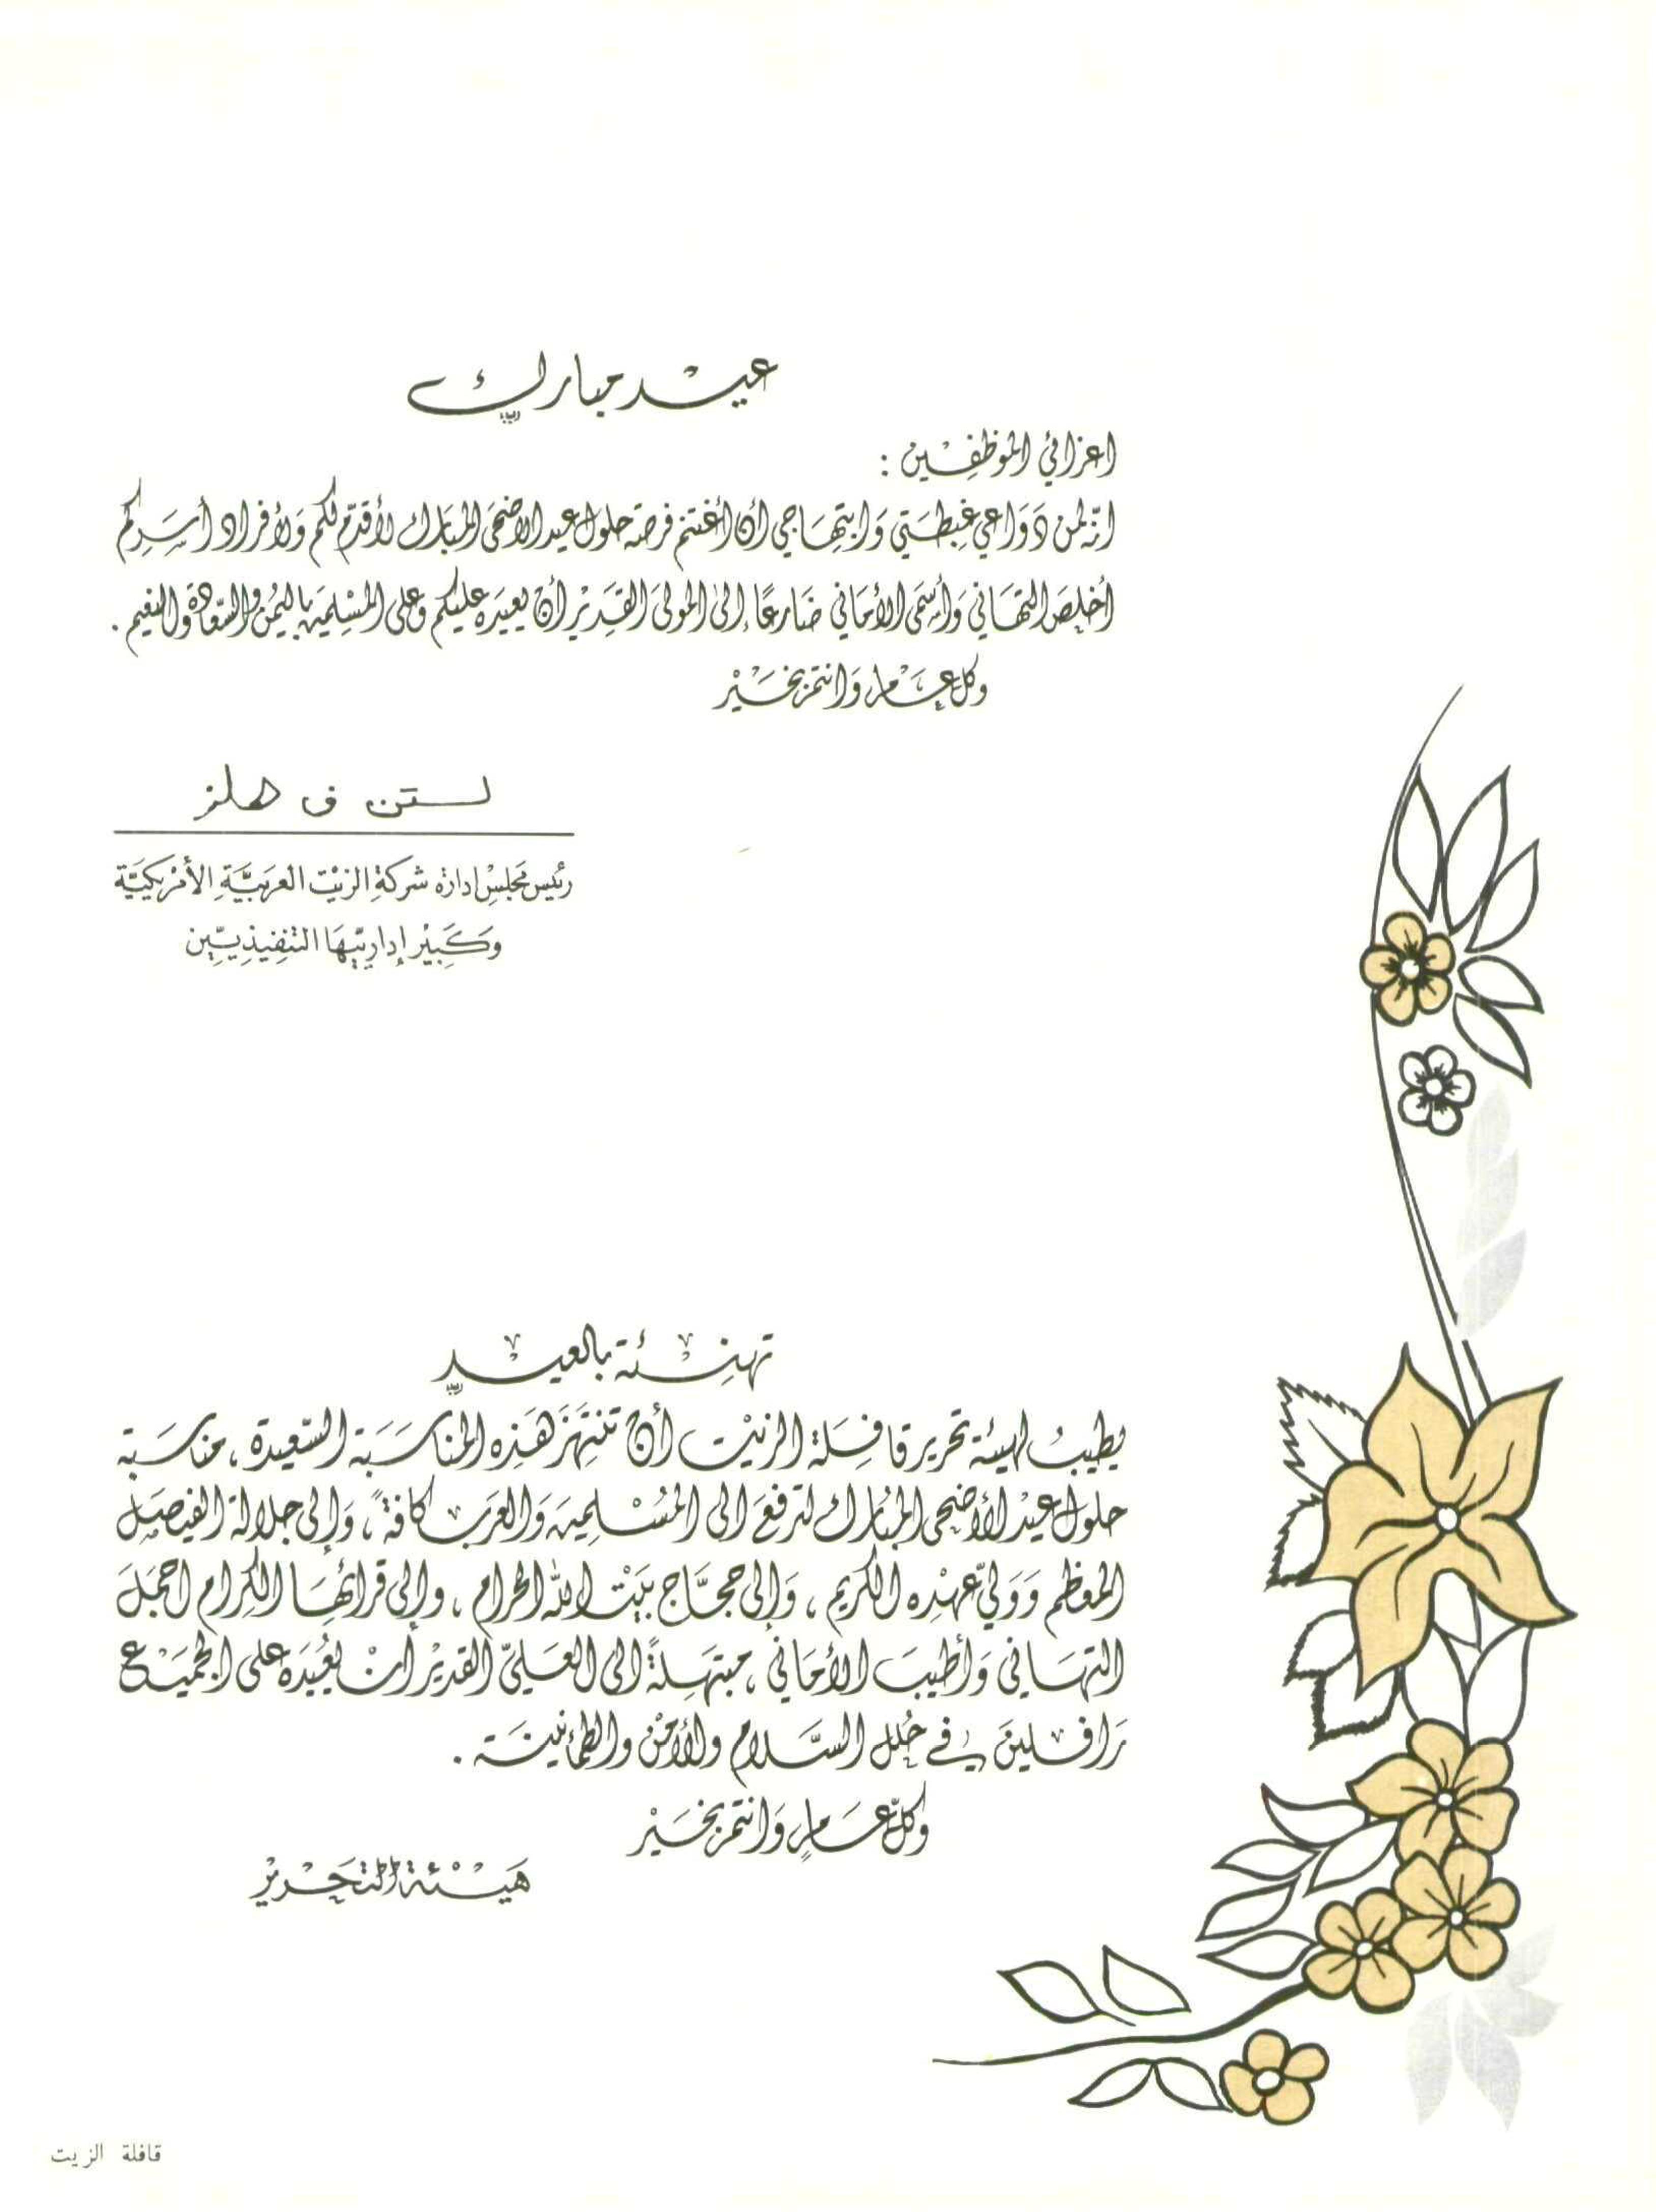 عيد مبارك
اعزائي الموظفين :
انّه لمن دَوَاعي غِبطَتي وَابتهَاجي أن أغتنم فرصة حلول عيد الاضحَى المبَارك لأقدّم لكم وَلأفراد أسَركم
أخلصَ التهَاني وَأسمَى الأمَاني ضَارعًا إلى المولىَ القَدِير أن يعيدَه عليكم وعلى المسْلِمين باليُمن والسّعَادة والنعيم .
وكل عَام وَانتم بخَيْر
لستن ف هلز
رئيس مجَلسْ إدارة شركة الزيْت العَربيَّة الأمْريكيَّة
وَكَبيْر إداريّيهَا التنفيذِيّين
تهنئة بالعيد
يطيبُ لهيئة تحرير قافِلَة الزيْت أن تنتَهزَ هَذِه المنَاسَبَة السّعيدة ، مناسَبة
حلول عيْد الأضحى المبَارك لترفعَ الى المُسْلمين وَالعَرب كافةً ، وَإلى جلالة الفيصَل
المعظم وَوَليّ عهْدِه الكريم ، وَإلى حجَّاج بيَتْ الله الحرام ، وإلى قرائهَا الكِرام اجمَلَ
التهَاني وَأطيبَ الأمَاني ، مبتهلةً الى العَليّ القدير أنْ يُعيدَه على الجميَع
رَافلين في حُلل السَّلام والأمْن والطمأنينَة .
وَكلّ عَامٍ وَانتم بخَيْر
هَيْئة التحَرْير
قافلة الزيت